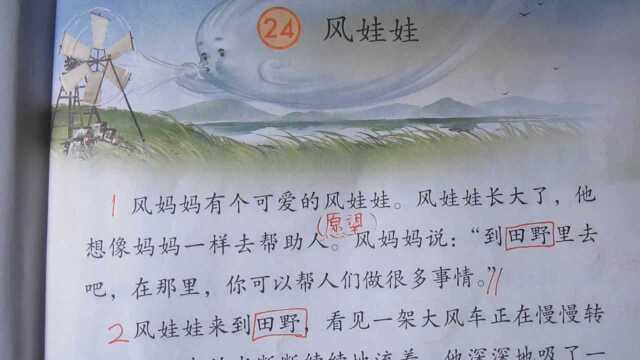 24 风娃娃
1 风妈妈有个可爱的风娃娃。风娃娃长大了，他
(愿望)
想像妈妈一样去帮助人。风妈妈说：“到田野里去
吧，在那里，你可以帮人们做很多事情。”
2 风娃娃来到田野，看见一架大风车正在慢慢转
断断续续地流着。他深深地吸了一